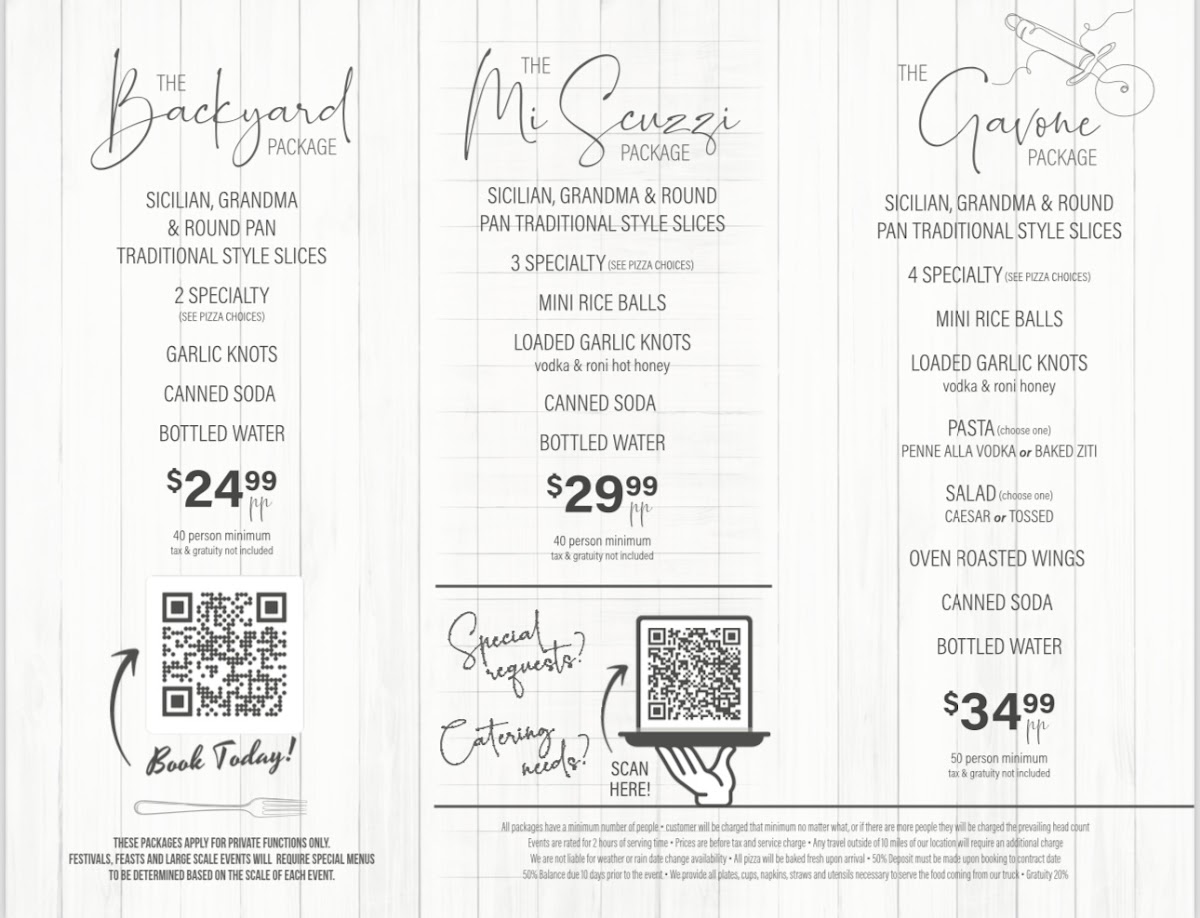 THE
Backyard
PACKAGE
SICILIAN, GRANDMA
& ROUND PAN
TRADITIONAL STYLE SLICES
2 SPECIALTY
(SEE PIZZA CHOICES)
GARLIC KNOTS
CANNED SODA
BOTTLED WATER
$24.99
pp
40 person minimum
tax & gratuity not included
Book Today!
THESE PACKAGES APPLY FOR PRIVATE FUNCTIONS ONLY.
FESTIVALS, FEASTS AND LARGE SCALE EVENTS WILL REQUIRE SPECIAL MENUS
TO BE DETERMINED BASED ON THE SCALE OF EACH EVENT.
THE
Mi Scuzzi
PACKAGE
SICILIAN, GRANDMA & ROUND
PAN TRADITIONAL STYLE SLICES
3 SPECIALTY (SEE PIZZA CHOICES)
MINI RICE BALLS
LOADED GARLIC KNOTS
vodka & roni hot honey
CANNED SODA
BOTTLED WATER
$29.99
pp
40 person minimum
tax & gratuity not included
Special
requests?
Catering
needs?
SCAN
HERE!
THE
Gavone
PACKAGE
SICILIAN, GRANDMA & ROUND
PAN TRADITIONAL STYLE SLICES
4 SPECIALTY (SEE PIZZA CHOICES)
MINI RICE BALLS
LOADED GARLIC KNOTS
vodka & roni honey
PASTA (choose one)
PENNE ALLA VODKA or BAKED ZITI
SALAD (choose one)
CAESAR or TOSSED
OVEN ROASTED WINGS
CANNED SODA
BOTTLED WATER
$34.99
pp
50 person minimum
tax & gratuity not included
All packages have a minimum number of people • customer will be charged that minimum no matter what, or if there are more people they will be charged the prevailing head count
Events are rated for 2 hours of serving time • Prices are before tax and service charge • Any travel outside of 10 miles of our location will require an additional charge
We are not liable for weather or rain date change availability • All pizza will be baked fresh upon arrival • 50% Deposit must be made upon booking to contract date
50% Balance due 10 days prior to the event • We provide all plates, cups, napkins, straws and utensils necessary to serve the food coming from our truck • Gratuity 20%